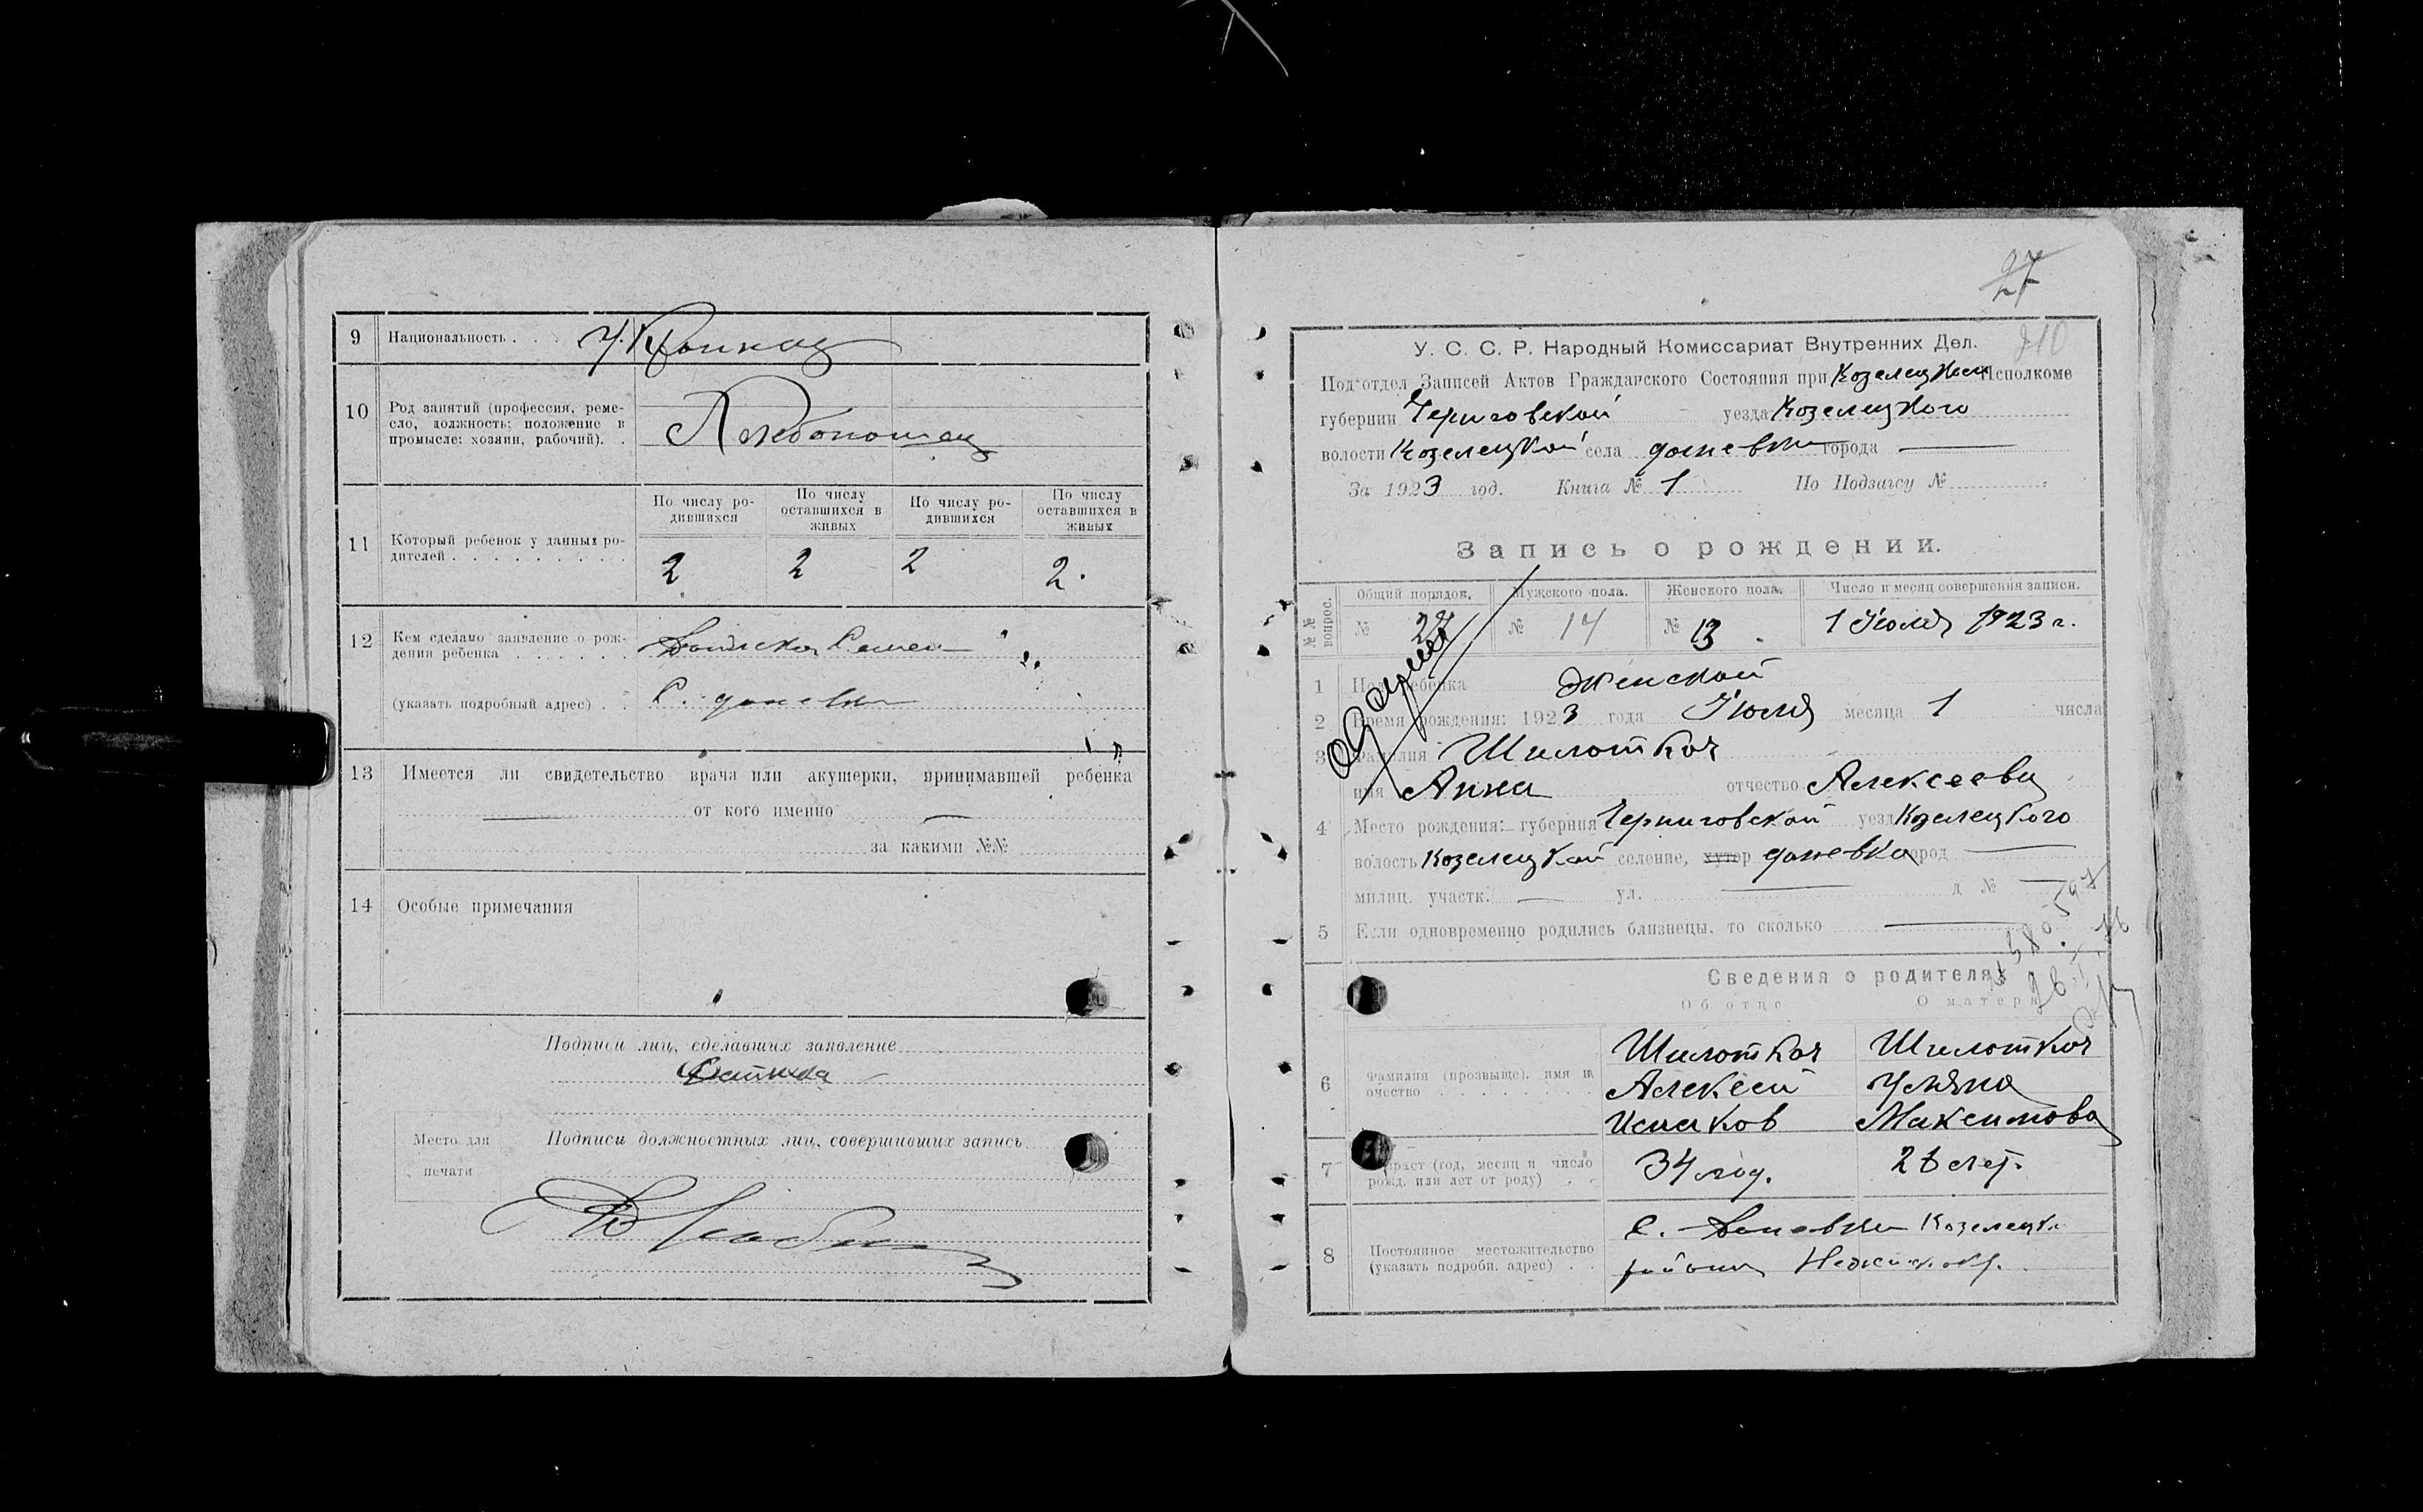 9 Национальность . . . У.Краинец
10 Род занятий (профессия, реме-
сло, должность; положение в
промысле: хозяин, рабочий). .
Хлебопашец
По числу ро-
дившихся
По числу
оставшихся в
живых
По числу ро-
дившихся
По числу
оставшихся в
живых
11 Который ребенок у данных ро-
дителей . . . . . . . . .
2 2 2 2.
12 Кем сделано заявление о рож-
дении ребенка . . . . . .
(указать подробный адрес) . . С. даневка
13 Имеется ли свидетельство врача или акушерки, принимавшей ребенка
от кого именно
за какими №№
14 Особые примечания
Подписи лиц, сделавших заявление
Место для
печати
Подписи должностных лиц, совершивших запись
27
210
У. С. С. Р. Народный Комиссариат Внутренних Дел.
Подотдел Записей Актов Гражданского Состояния при Козелецком Исполкоме
губернии Черниговской уезда Козелецкого
волости Козелецкой села даневки города
За 1923 год. Книга № 1 По Подзагсу №
Запись о рождении.
№№ вопрос.
Общий порядок. Мужского пола. Женского пола. Число и месяц совершения записи.
№ 27 № 14 № 13 1 Июля 1923 г.
1 Пол ребенка Женской
2 Время рождения: 1923 года Июля месяца 1 числа
3 Фамилия Шило
имя Анна отчество Алексеевна
4 Место рождения: губерния Черниговской уезд Козелецкого
волость Козелецкой селение, хутор даневка город
милиц. участк. ул. д №
5 Если одновременно родились близнецы, то сколько
Сведения о родителях
Об отце О матери
6 Фамилия (прозвыще), имя и
очество . . . . . . . .
Алексей Ульяна
Исаков Максимова
7 Возраст (год, месяц и число
рожд. или лет от роду) . .
34 год. 28 лет.
8 Постоянное местожительство
(указать подробн. адрес) . .
С. Даневки Козелецк.
района Нежинск. окр.